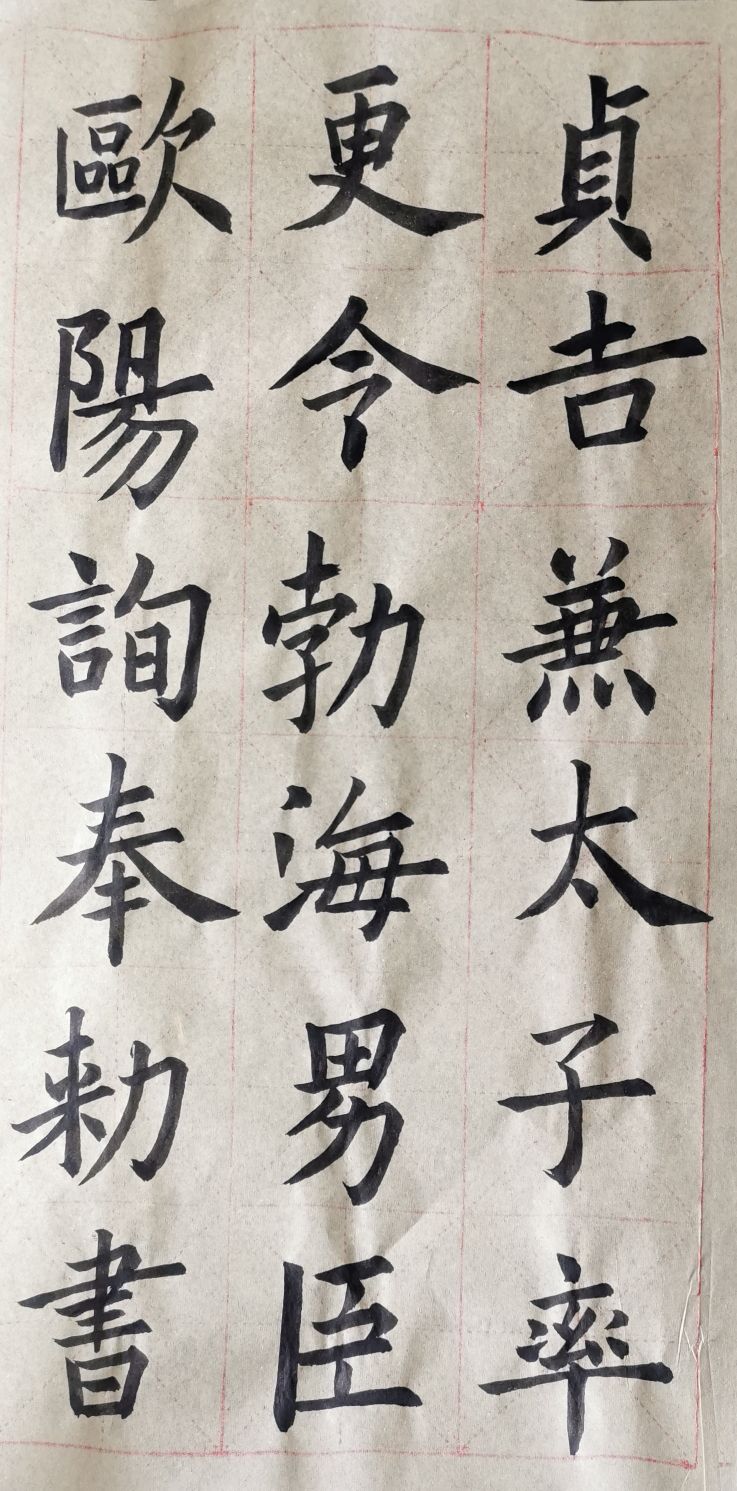 貞吉兼太子率
更令勃海男臣
歐陽詢奉勅書